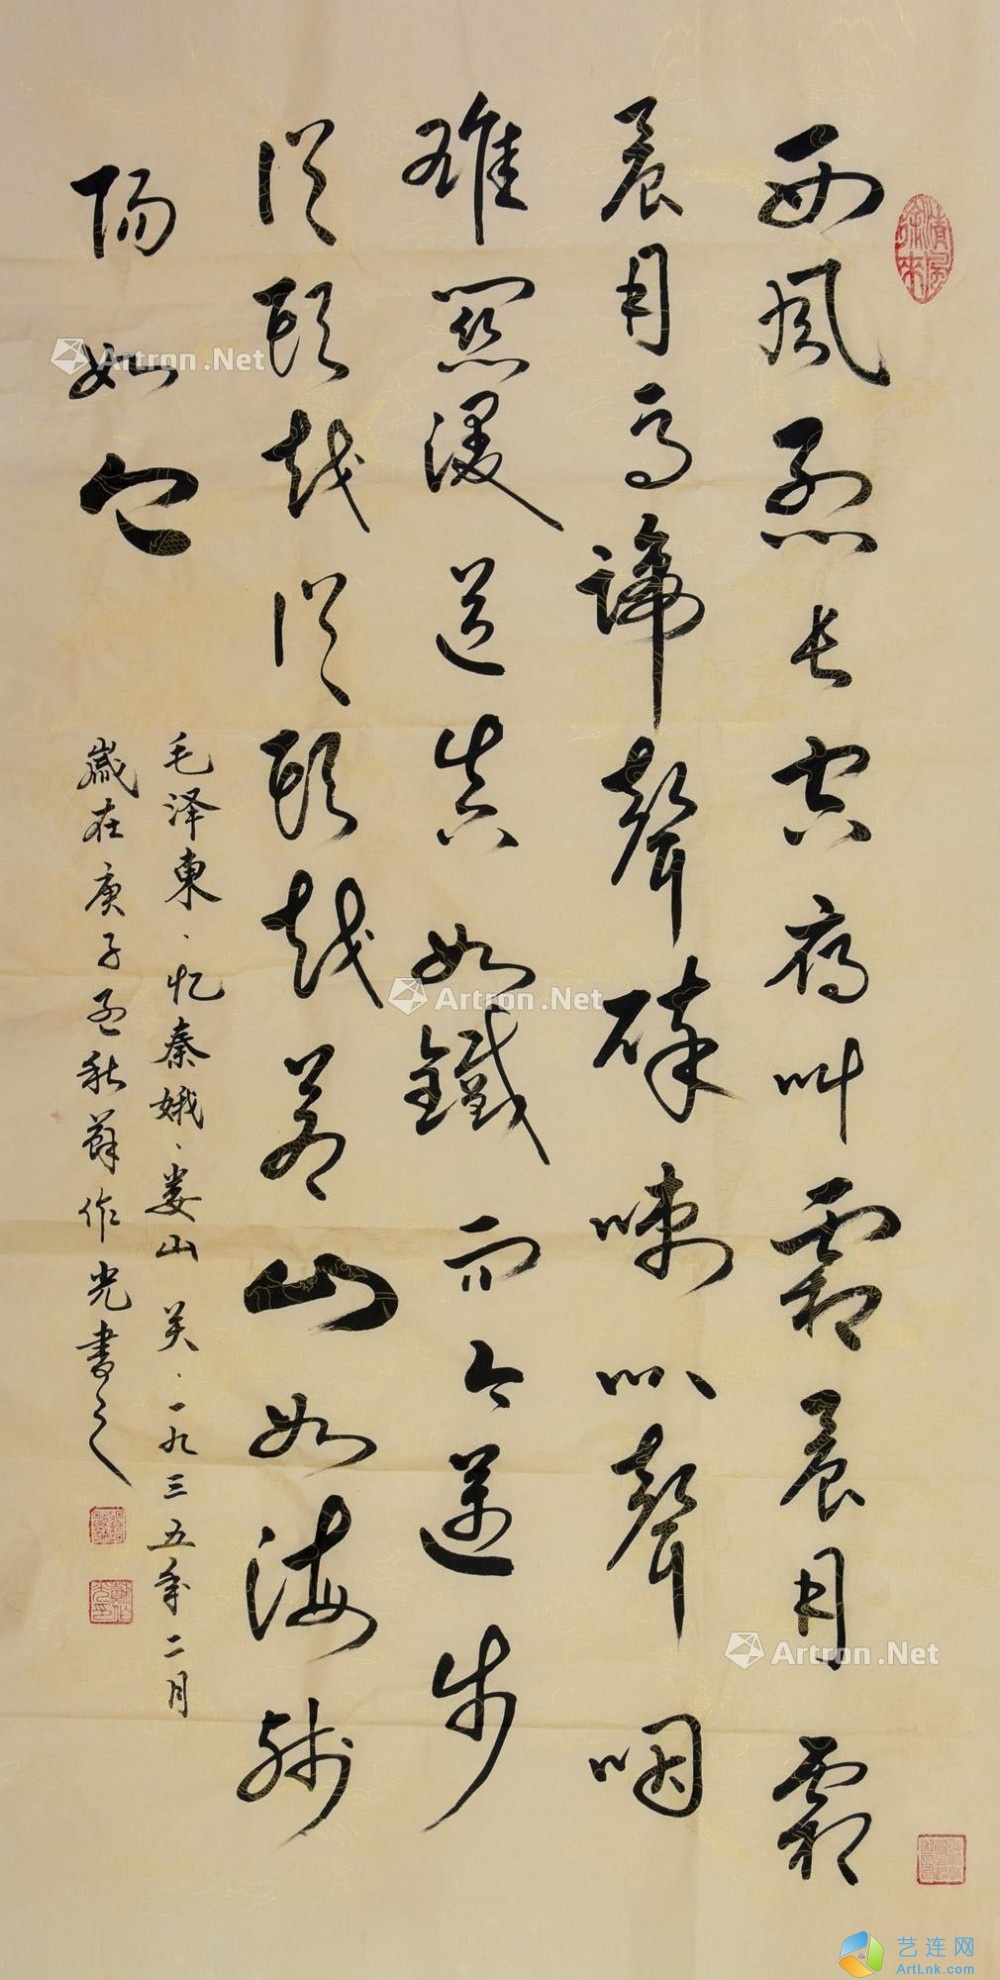 西風烈長空雁叫霜晨月霜
晨月馬蹄聲碎喇叭聲咽
雄關漫道真如鐵而今邁步
從頭越從頭越蒼山如海殘
陽如血
毛泽東、忆秦娥、娄山关、一九三五年二月
歲在庚子孟秋薛作光書之
清風徐來
Artron.Net
Artron.Net
Artron.Net
艺连网
ArtLnk.com